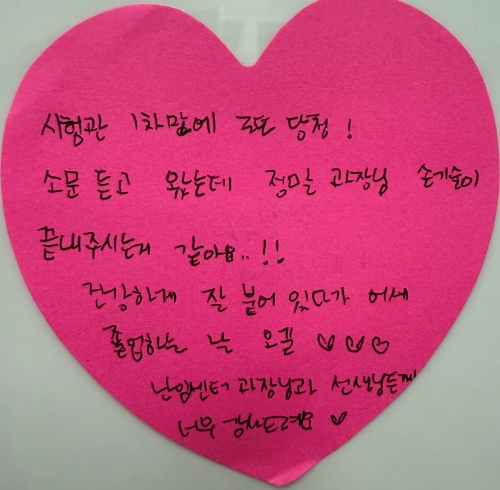 시험관 1차만에 로또 당첨!
소문 듣고 왔는데 정말 과장님 손기술이
끝내주시는거 같아요..!!
건강하게 잘 붙어 있다가 어서
졸업하는 날 오길 ♡♡♡
난임센터 과장님과 선생님들께
너무 감사드려요 ♡